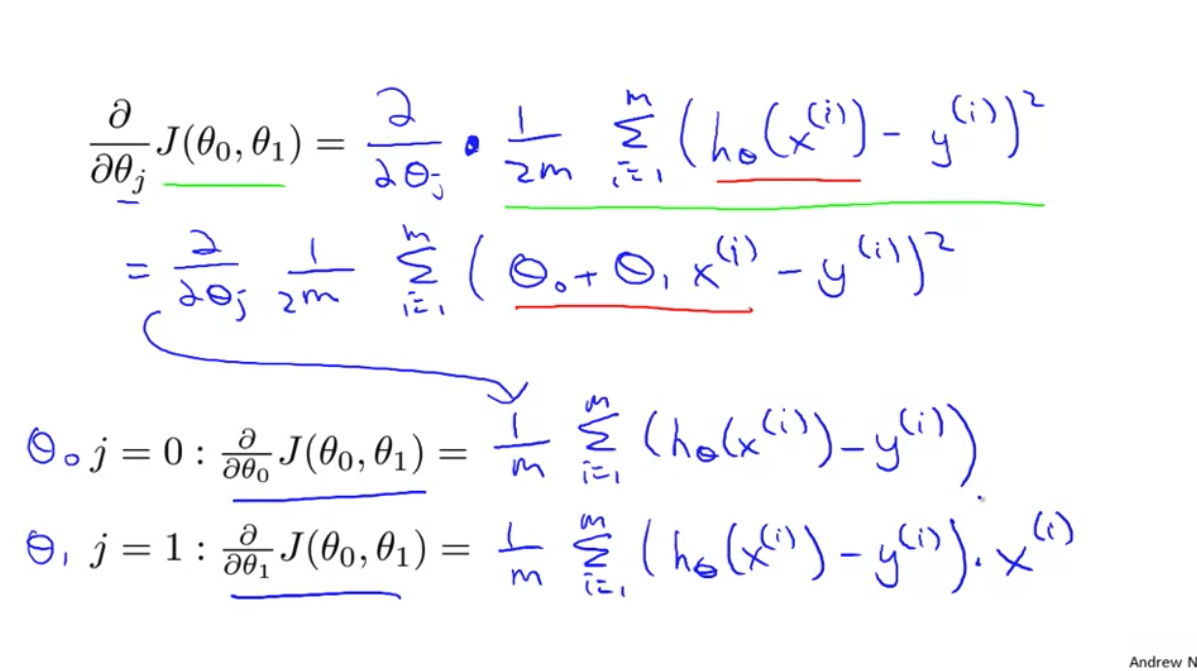 ∂/∂θⱼ J(θ₀, θ₁) = ∂/∂θⱼ · 1/2m Σᵢ₌₁ᵐ (h_θ(x⁽ⁱ⁾) - y⁽ⁱ⁾)²
= ∂/∂θⱼ 1/2m Σᵢ₌₁ᵐ (θ₀ + θ₁ x⁽ⁱ⁾ - y⁽ⁱ⁾)²
θ₀ j = 0 : ∂/∂θ₀ J(θ₀, θ₁) = 1/m Σᵢ₌₁ᵐ (h_θ(x⁽ⁱ⁾) - y⁽ⁱ⁾)
θ₁ j = 1 : ∂/∂θ₁ J(θ₀, θ₁) = 1/m Σᵢ₌₁ᵐ (h_θ(x⁽ⁱ⁾) - y⁽ⁱ⁾) · x⁽ⁱ⁾
Andrew N